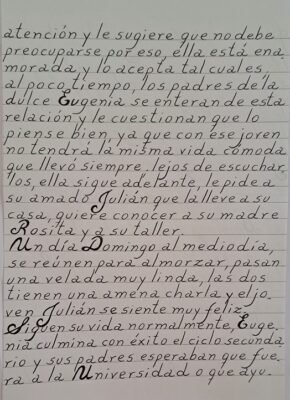 atención y le sugiere que no debe
preocuparse por eso, élla está ena
morada y lo acepta tal cual es,
al poco tiempo, los padres de la
dulce Eugenia se enteran de esta
relación y le cuestionan que lo
piense bien, ya que con ese joven
no tendrá la misma vida cómoda
que llevó siempre. lejos de escuchar
los, ella sigue adelante, le pide a
su amado Julián que la lleve a su
casa, quiere conocer a su madre
Rosita y a su taller.
Un día Domingo al mediodía,
se reúnen para almorzar, pasan
una velada muy linda, las dos
tienen una amena charla y el jo-
ven Julián se siente muy feliz.
Siguen su vida normalmente, Euge-
nia culmina con éxito el ciclo secunda
rio y sus padres esperaban que fue-
ra a la Universidad o que ayu-